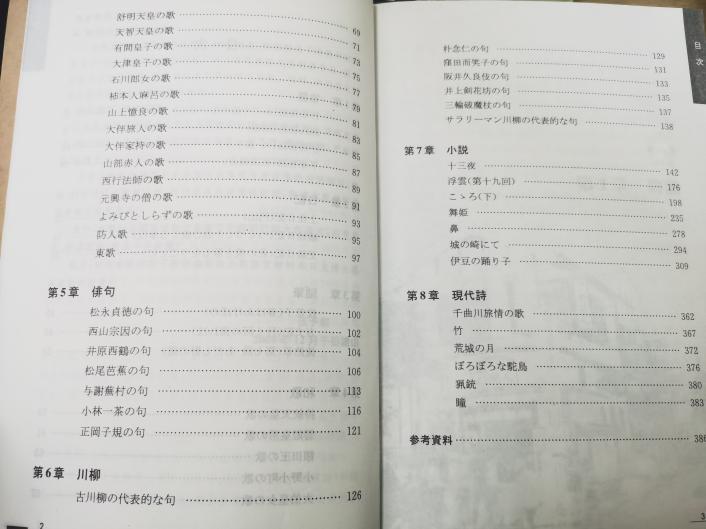 舒明天皇の歌 69
天智天皇の歌 71
有間皇子の歌 73
大津皇子の歌 75
石川郎女の歌 77
柿本人麻呂の歌 79
山上憶良の歌 81
大伴旅人の歌 83
大伴家持の歌 85
山部赤人の歌 87
西行法師の歌 89
元興寺の僧の歌 91
よみびとしらずの歌 93
防人歌 95
東歌 97
第5章 俳句
松永貞徳の句 100
西山宗因の句 102
井原西鶴の句 104
松尾芭蕉の句 106
与謝蕪村の句 113
小林一茶の句 116
正岡子規の句 121
第6章 川柳
古川柳の代表的な句 126
2
目次
朴念仁の句 129
窪田而笑子の句 131
阪井久良伎の句 133
井上剣花坊の句 135
三輪破魔杖の句 137
サラリーマン川柳の代表的な句 138
第7章 小説
十三夜 142
浮雲(第十九回) 176
こゝろ(下) 198
舞姫 235
鼻 278
城の崎にて 294
伊豆の踊り子 309
第8章 現代詩
千曲川旅情の歌 362
竹 367
荒城の月 372
ぼろぼろな駝鳥 376
猟銃 380
瞳 383
参考資料 386
3